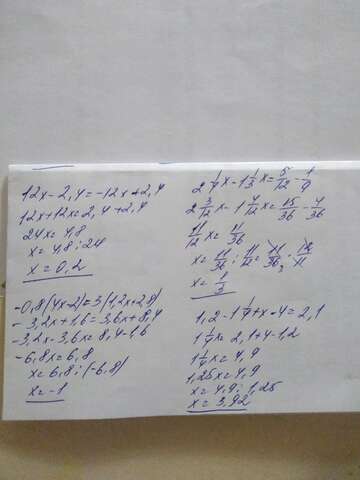 12x-2,4=-12x+2,4
12x+12x=2,4+2,4
24x=4,8
x=4,8:24
x=0,2
-0,8(4x-2)=3(1,2x+2,8)
-3,2x+1,6=3,6x+8,4
-3,2x-3,6x=8,4-1,6
-6,8x=6,8
x=6,8:(-6,8)
x=-1
2 1/4 x - 1 1/3 x = 5/12 - 1/9
2 3/12 x - 1 4/12 x = 15/36 - 4/36
11/12 x = 11/36
x = 11/36 : 11/12 = 11/36 · 12/11
x = 1/3
1,2-1 1/4 x-4=2,1
1 1/4 x=2,1+4-1,2
1 1/4 x=4,9
1,25x=4,9
x=4,9:1,25
x=3,92